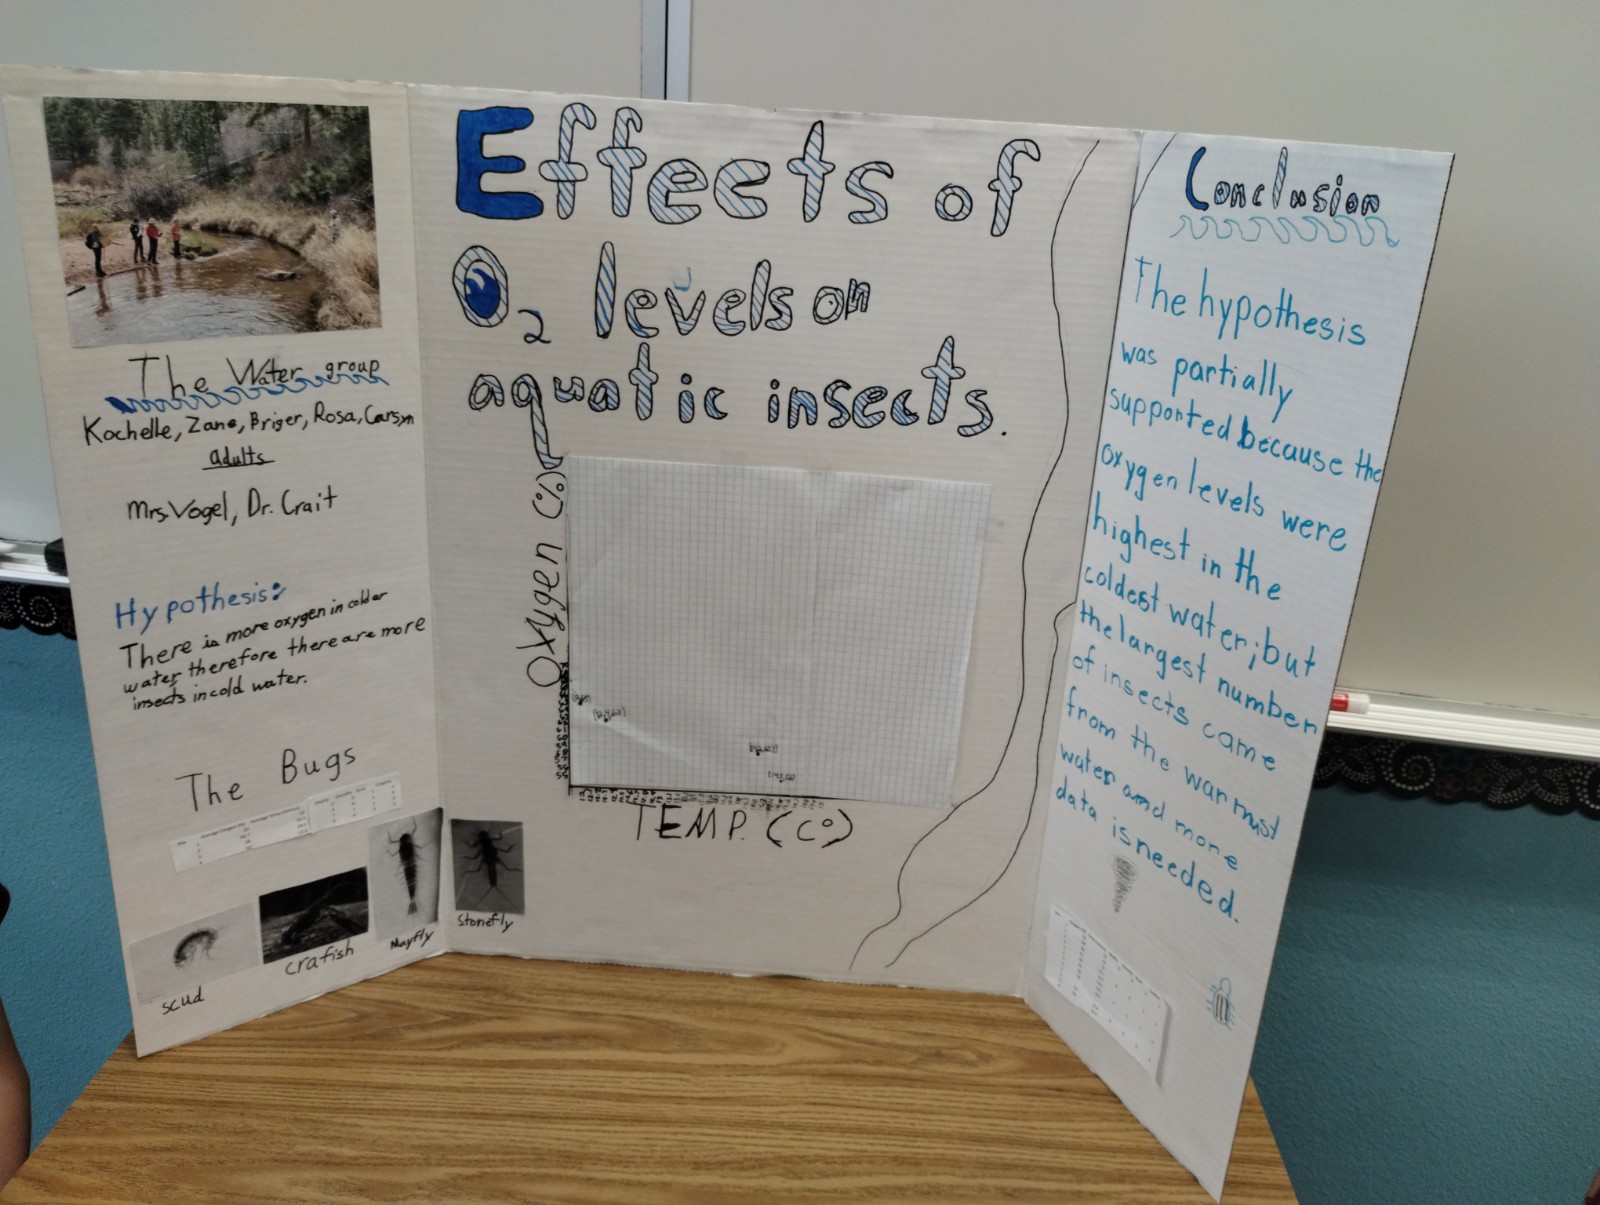 The Water group
Kochelle, Zane, Briger, Rosa, Carsyn
adults
Mrs. Vogel, Dr. Crait
Hypothesis:
There is more oxygen in colder
water therefore there are more
insects in cold water.
The Bugs
scud
crafish
Mayfly
Stonefly
Effects of
O2 levels on
aquatic insects.
Oxygen (%)
TEMP. (C°)
Conclusion
The hypothesis
was partially
supported because the
oxygen levels were
highest in the
coldest water; but
the largest number
of insects came
from the warmust
water and more
data is needed.